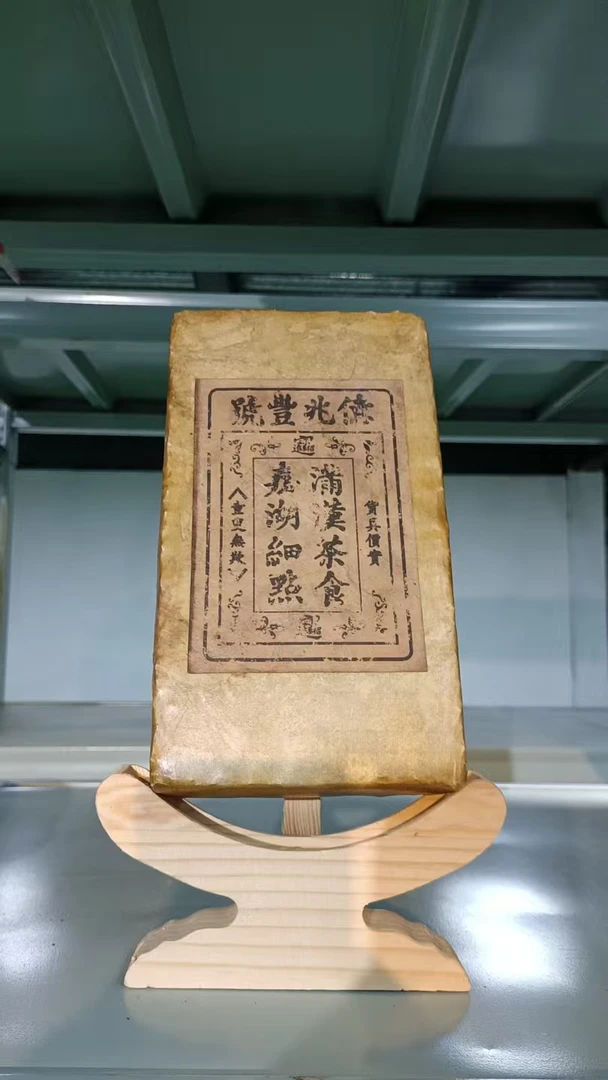 兆豐號
貨真價實
滿漢茶食
嘉湖細點
童叟無欺